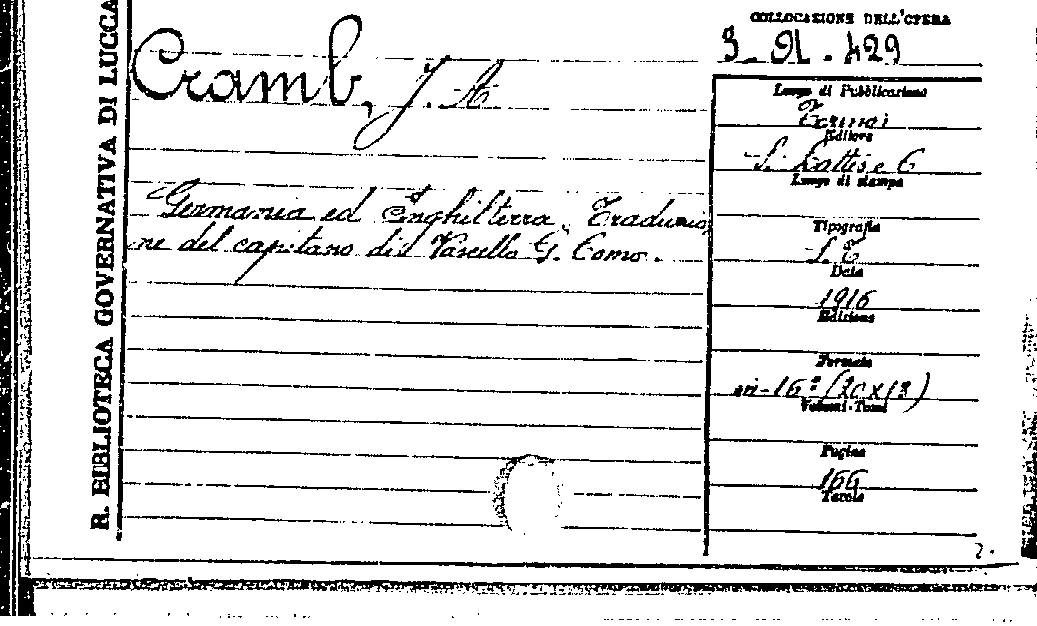 R. BIBLIOTECA GOVERNATIVA DI LUCCA
COLLOCAZIONE DELL'OPERA
Cramb, J. A
Luogo di Pubblicazione
Editore
S. Lattes e C
Luogo di stampa
Germania ed Inghilterra, Traduzio
ne del capitano di Vascello G. Como.
Tipografia
L. E
Data
1916
Edizione
Formato
in-16º (20x13)
Volumi-Tomi
Pagine
166
Tavole
2.